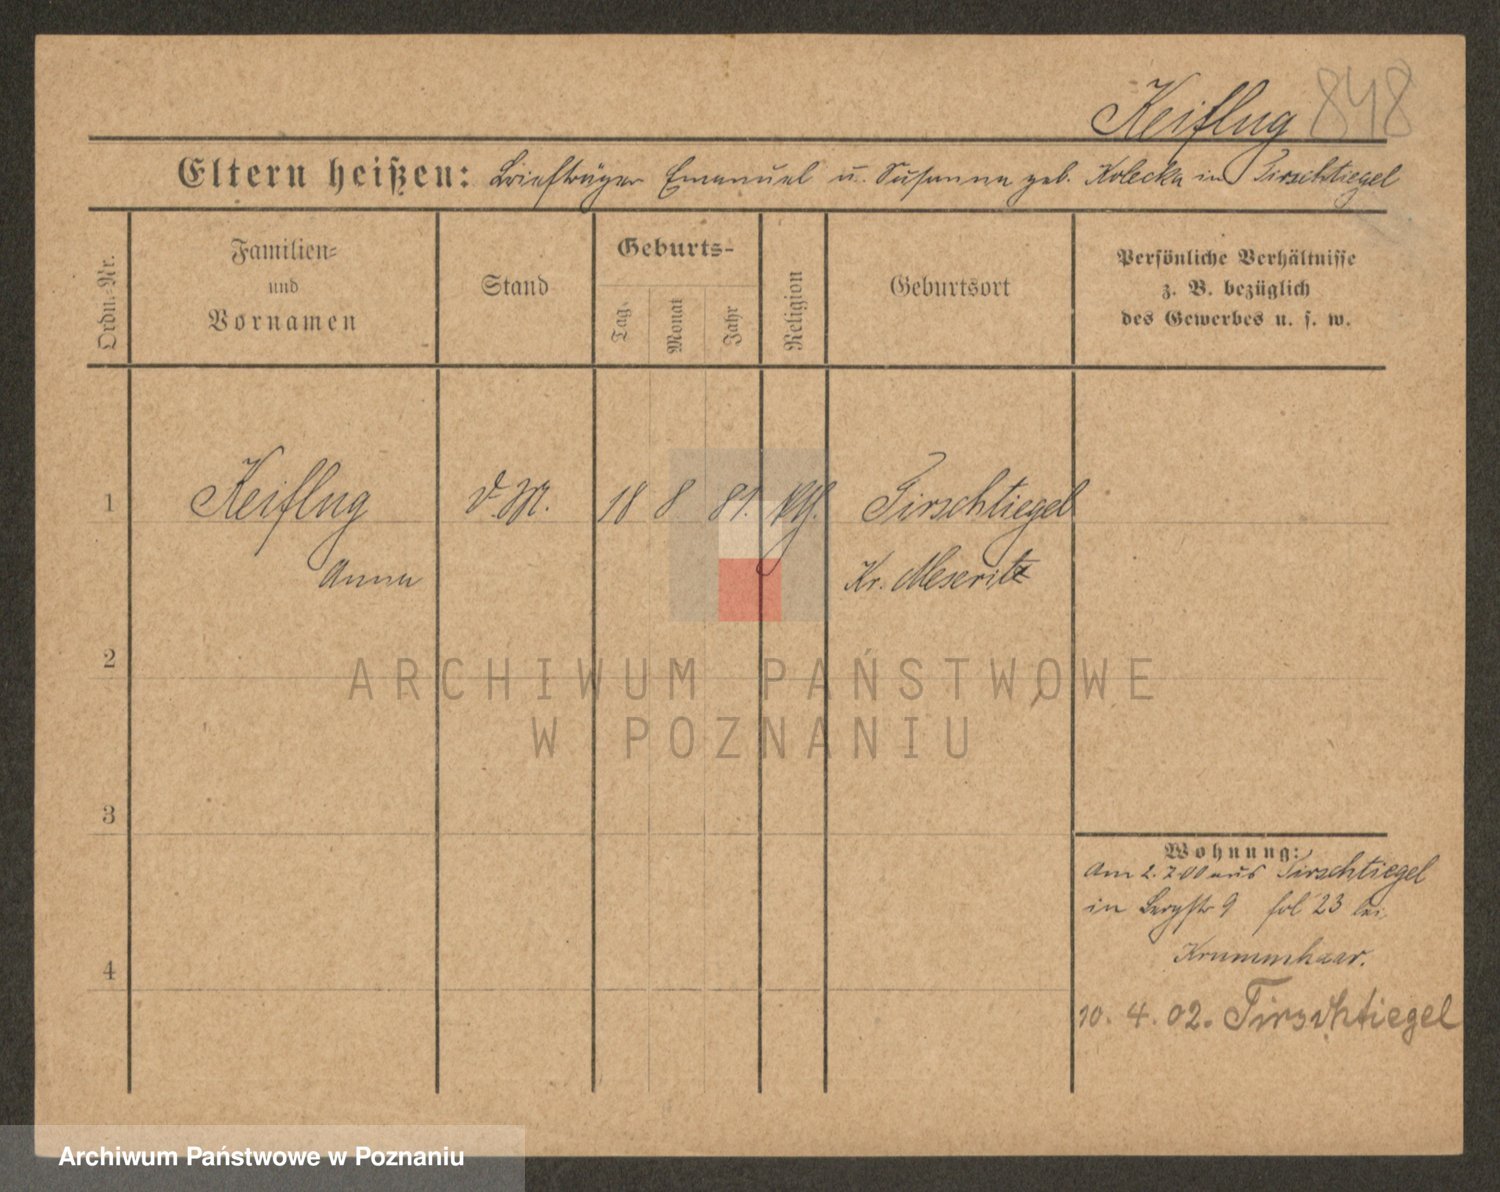 Keiflug 848
Eltern heißen: Briefträger Emanuel u. Susanna geb. Kolecka in Tirschtiegel
Ordn.-Nr.
Familien-
und
Vornamen
Stand
Geburts-
Tag
Monat
Jahr
Religion
Geburtsort
Persönliche Verhältnisse
z. B. bezüglich
des Gewerbes u. s. w.
1 Keiflug d. M. 18 8 81. kth. Tirschtiegel
Anna Kr. Meseritz
2
ARCHIWUM PAŃSTWOWE
W POZNANIU
3
Wohnung:
Am 2.7.00 aus Tirschtiegel
in Bergstr 9 fol 23 bei
Krummhaar.
4
10. 4. 02. Tirschtiegel
Archiwum Państwowe w Poznaniu